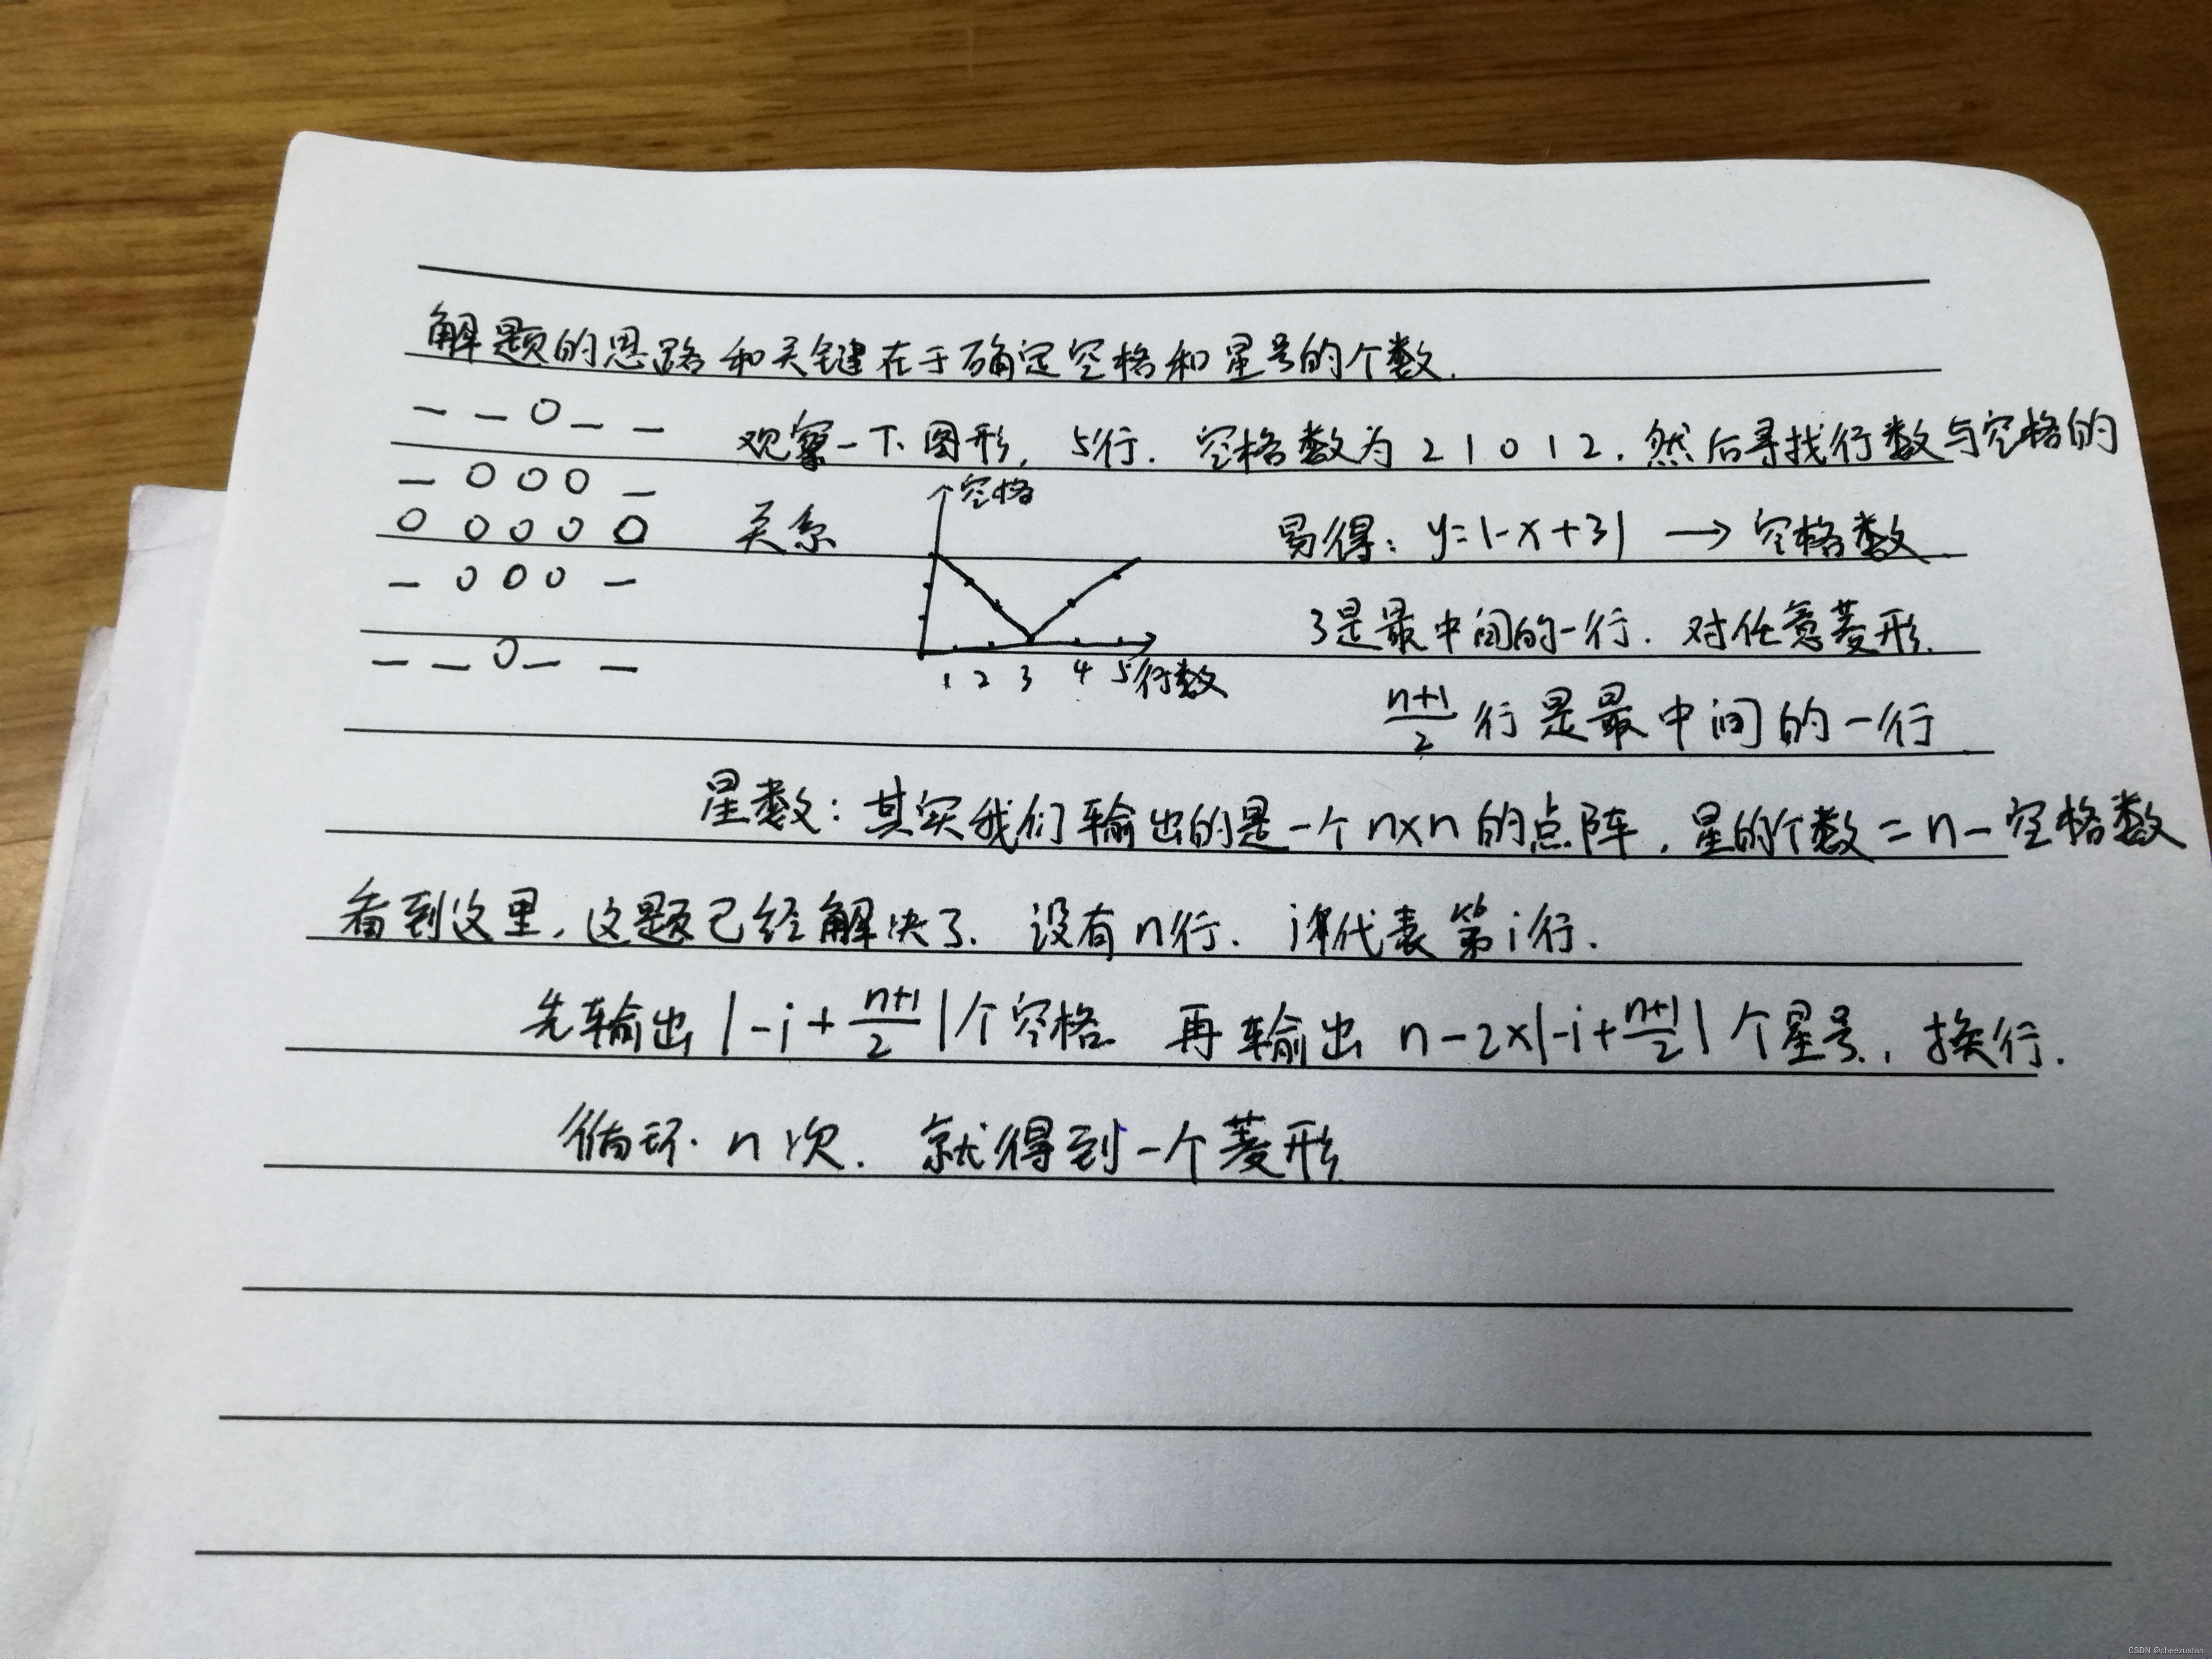 解题的思路和关键在于确定空格和星号的个数.
— — O — —
观察一下图形, 5行. 空格数为 2 1 0 1 2. 然后寻找行数与空格的
— O O O —
O O O O O
关系
— O O O —
— — O — —
空格
1 2 3 4 5 行数
易得: y=|-x+3| → 空格数.
3是最中间的一行. 对任意菱形.
n+1/2 行是最中间的一行.
星数: 其实我们输出的是一个 n×n 的点阵, 星的个数 = n - 空格数
看到这里, 这题已经解决了. 设有 n行. i代表第i行.
先输出 |-i + n+1/2| 个空格. 再输出 n-2×|-i+n+1/2| 个星号, 换行.
循环 n 次. 就得到一个菱形
CSDN @cheezustan